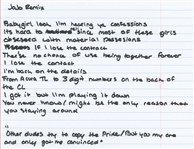 JoJo Remix
Babygirl look I'm hearing ya confessions
Its hard to since most of these girls
obsessed with material possesions
If I lose the contract
There's no chance of use being together forever
I lose the contact
I'm back on the details
From Area 72 to 3 digit numbers on the back of
the CL
I got it but I'm playing it down
You never know/might be the only reason that
you staying around
"
Other dudes try to copy the Pride/But you my one
and only got me convinced"